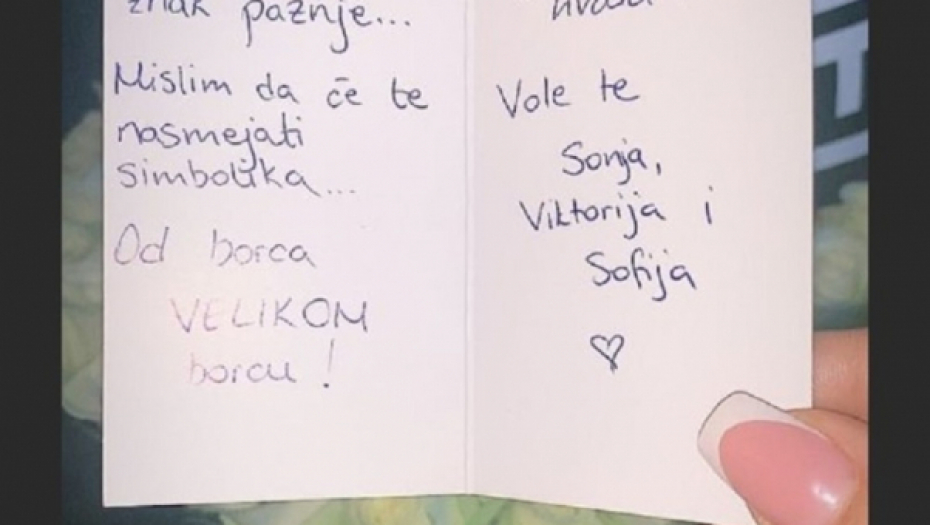 znak pažnje...
Mislim da će te
nasmejati
simbolika...
Od borca
VELIKOM
borcu!
Vole te
Sonja,
Viktorija i
Sofija
♡